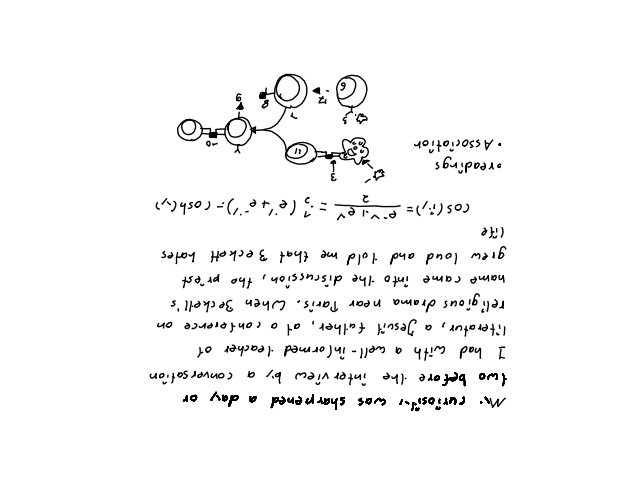 My curiosity was sharpened a day or
two before the interview by a conversation
I had with a well-informed teacher of
literatur, a Jesuit father, at a conference on
religious drama near Paris. When Beckett's
name came into the discussion, the priest
grew loud and told me that Beckett hates
life
cos(iy) = (e^-y + e^y)/2 = 1/2 (e^y + e^-y) = cosh(y)
•readings
•Association